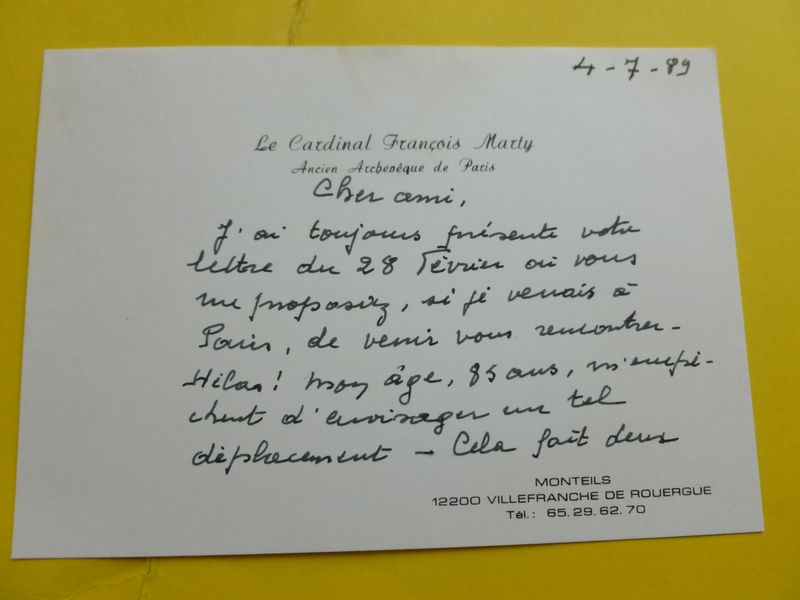 4-7-89
Le Cardinal François Marty
Ancien Archevêque de Paris
Cher ami,
J'ai toujours présente votre
lettre du 28 Février où vous
me proposiez, si je venais à
Paris, de venir vous rencontrer -
Hélas! Mon âge, 85 ans, m'empê-
chent d'envisager un tel
déplacement - Cela fait deux
MONTEILS
12200 VILLEFRANCHE DE ROUERGUE
Tél.: 65.29.62.70